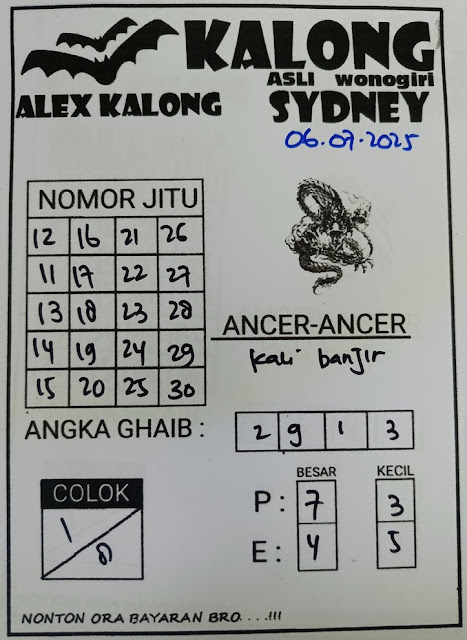 KALONG
ASLI wonogiri
ALEX KALONG
SYDNEY
06.07.2025
NOMOR JITU
12 16 21 26
11 17 22 27
13 18 23 28
14 19 24 29
15 20 25 30
ANCER-ANCER
Kali banjir
ANGKA GHAIB :
2 9 1 3
BESAR KECIL
P : 7 3
E : 4 5
COLOK
1
8
NONTON ORA BAYARAN BRO. . . .!!!